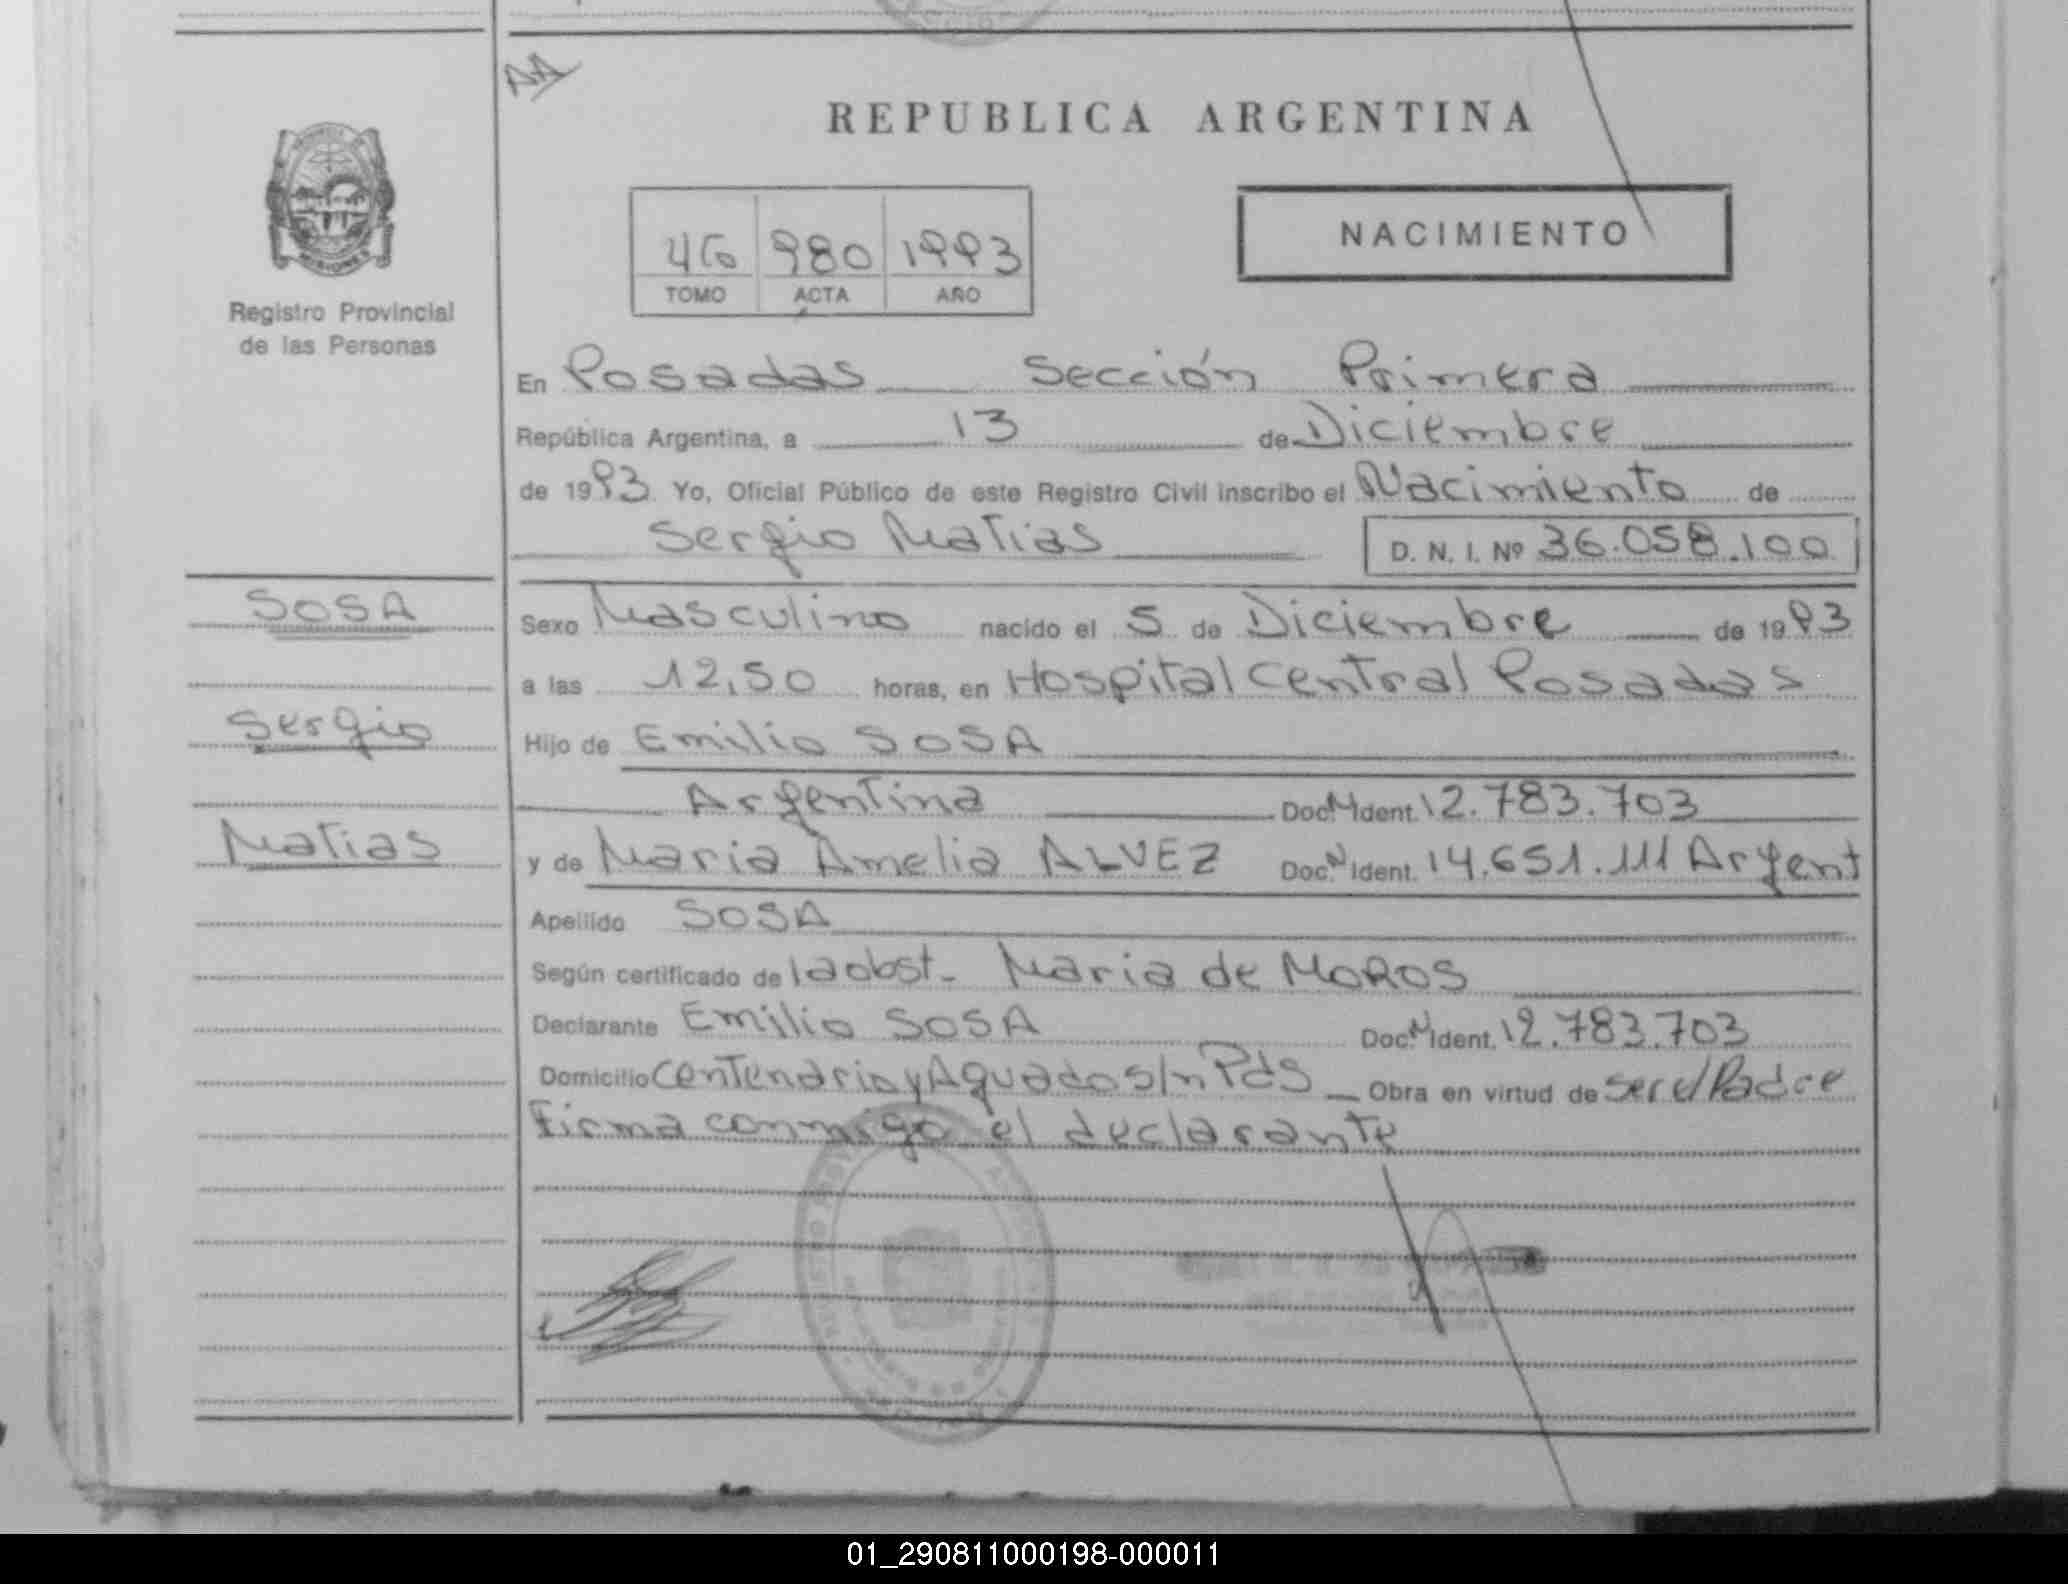 AA
REPUBLICA ARGENTINA
MISIONES
Registro Provincial
de las Personas
46 980 1993
TOMO ACTA AÑO
NACIMIENTO
En Posadas Sección Primera
República Argentina, a 13 de Diciembre
de 1993 Yo, Oficial Público de este Registro Civil inscribo el Nacimiento de
Sergio Matias D. N. I. Nº 36.058.100
SOSA
Sergio
Matias
Sexo Masculino nacido el 5 de Diciembre de 1993
a las 12,50 horas, en Hospital Central Posadas
Hijo de Emilio SOSA
Argentina Doc. N Ident. 12.783.703
y de Maria Amelia ALVEZ Doc. N Ident. 14.651.111 Argent
Apellido SOSA
Según certificado de la obst. Maria de MOROS
Declarante Emilio SOSA Doc. N Ident. 12.783.703
Domicilio Centenario y Aguado s/n Pds Obra en virtud de ser el Padre
Firma conmigo el declarante
01_290811000198-000011